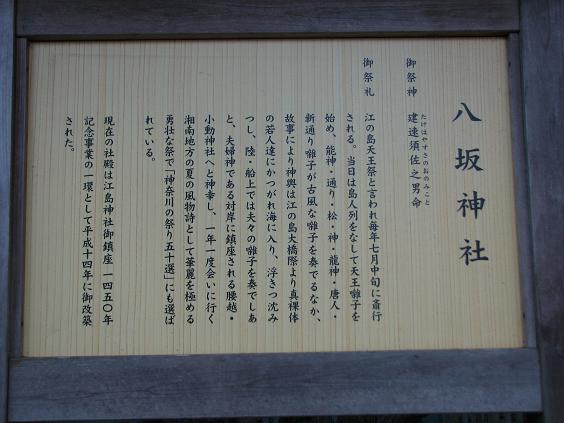 八坂神社
御祭神　建速須佐之男命
たけはやすさのおのみこと
御祭礼　江の島天王祭と言われ毎年七月中旬に斎行
される。当日は島人列をなして天王囃子を
始め、能神・通り・松・神・龍神・唐人・
新通り囃子が古風な囃子を奏でるなか、
故事により神輿は江の島大橋際より真裸体
の若人達にかつがれ海に入り、浮きつ沈み
つし、陸・船上では夫々の囃子を奏でしあ
と、夫婦神である対岸に鎮座される腰越・
小動神社へと神幸し、一年一度会いに行く
湘南地方の夏の風物詩として華麗を極める
勇壮な祭で「神奈川の祭り五十選」にも選ば
れている。
現在の社殿は江島神社御鎮座一四五〇年
記念事業の一環として平成十四年に御改築
された。